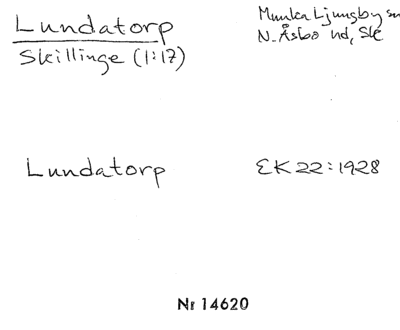 Lundatorp
Skillinge (1:17)
Munka Ljungby sn
N. Åsbo hd, Sk
Lundatorp
EK 22:1928
Nr 14620